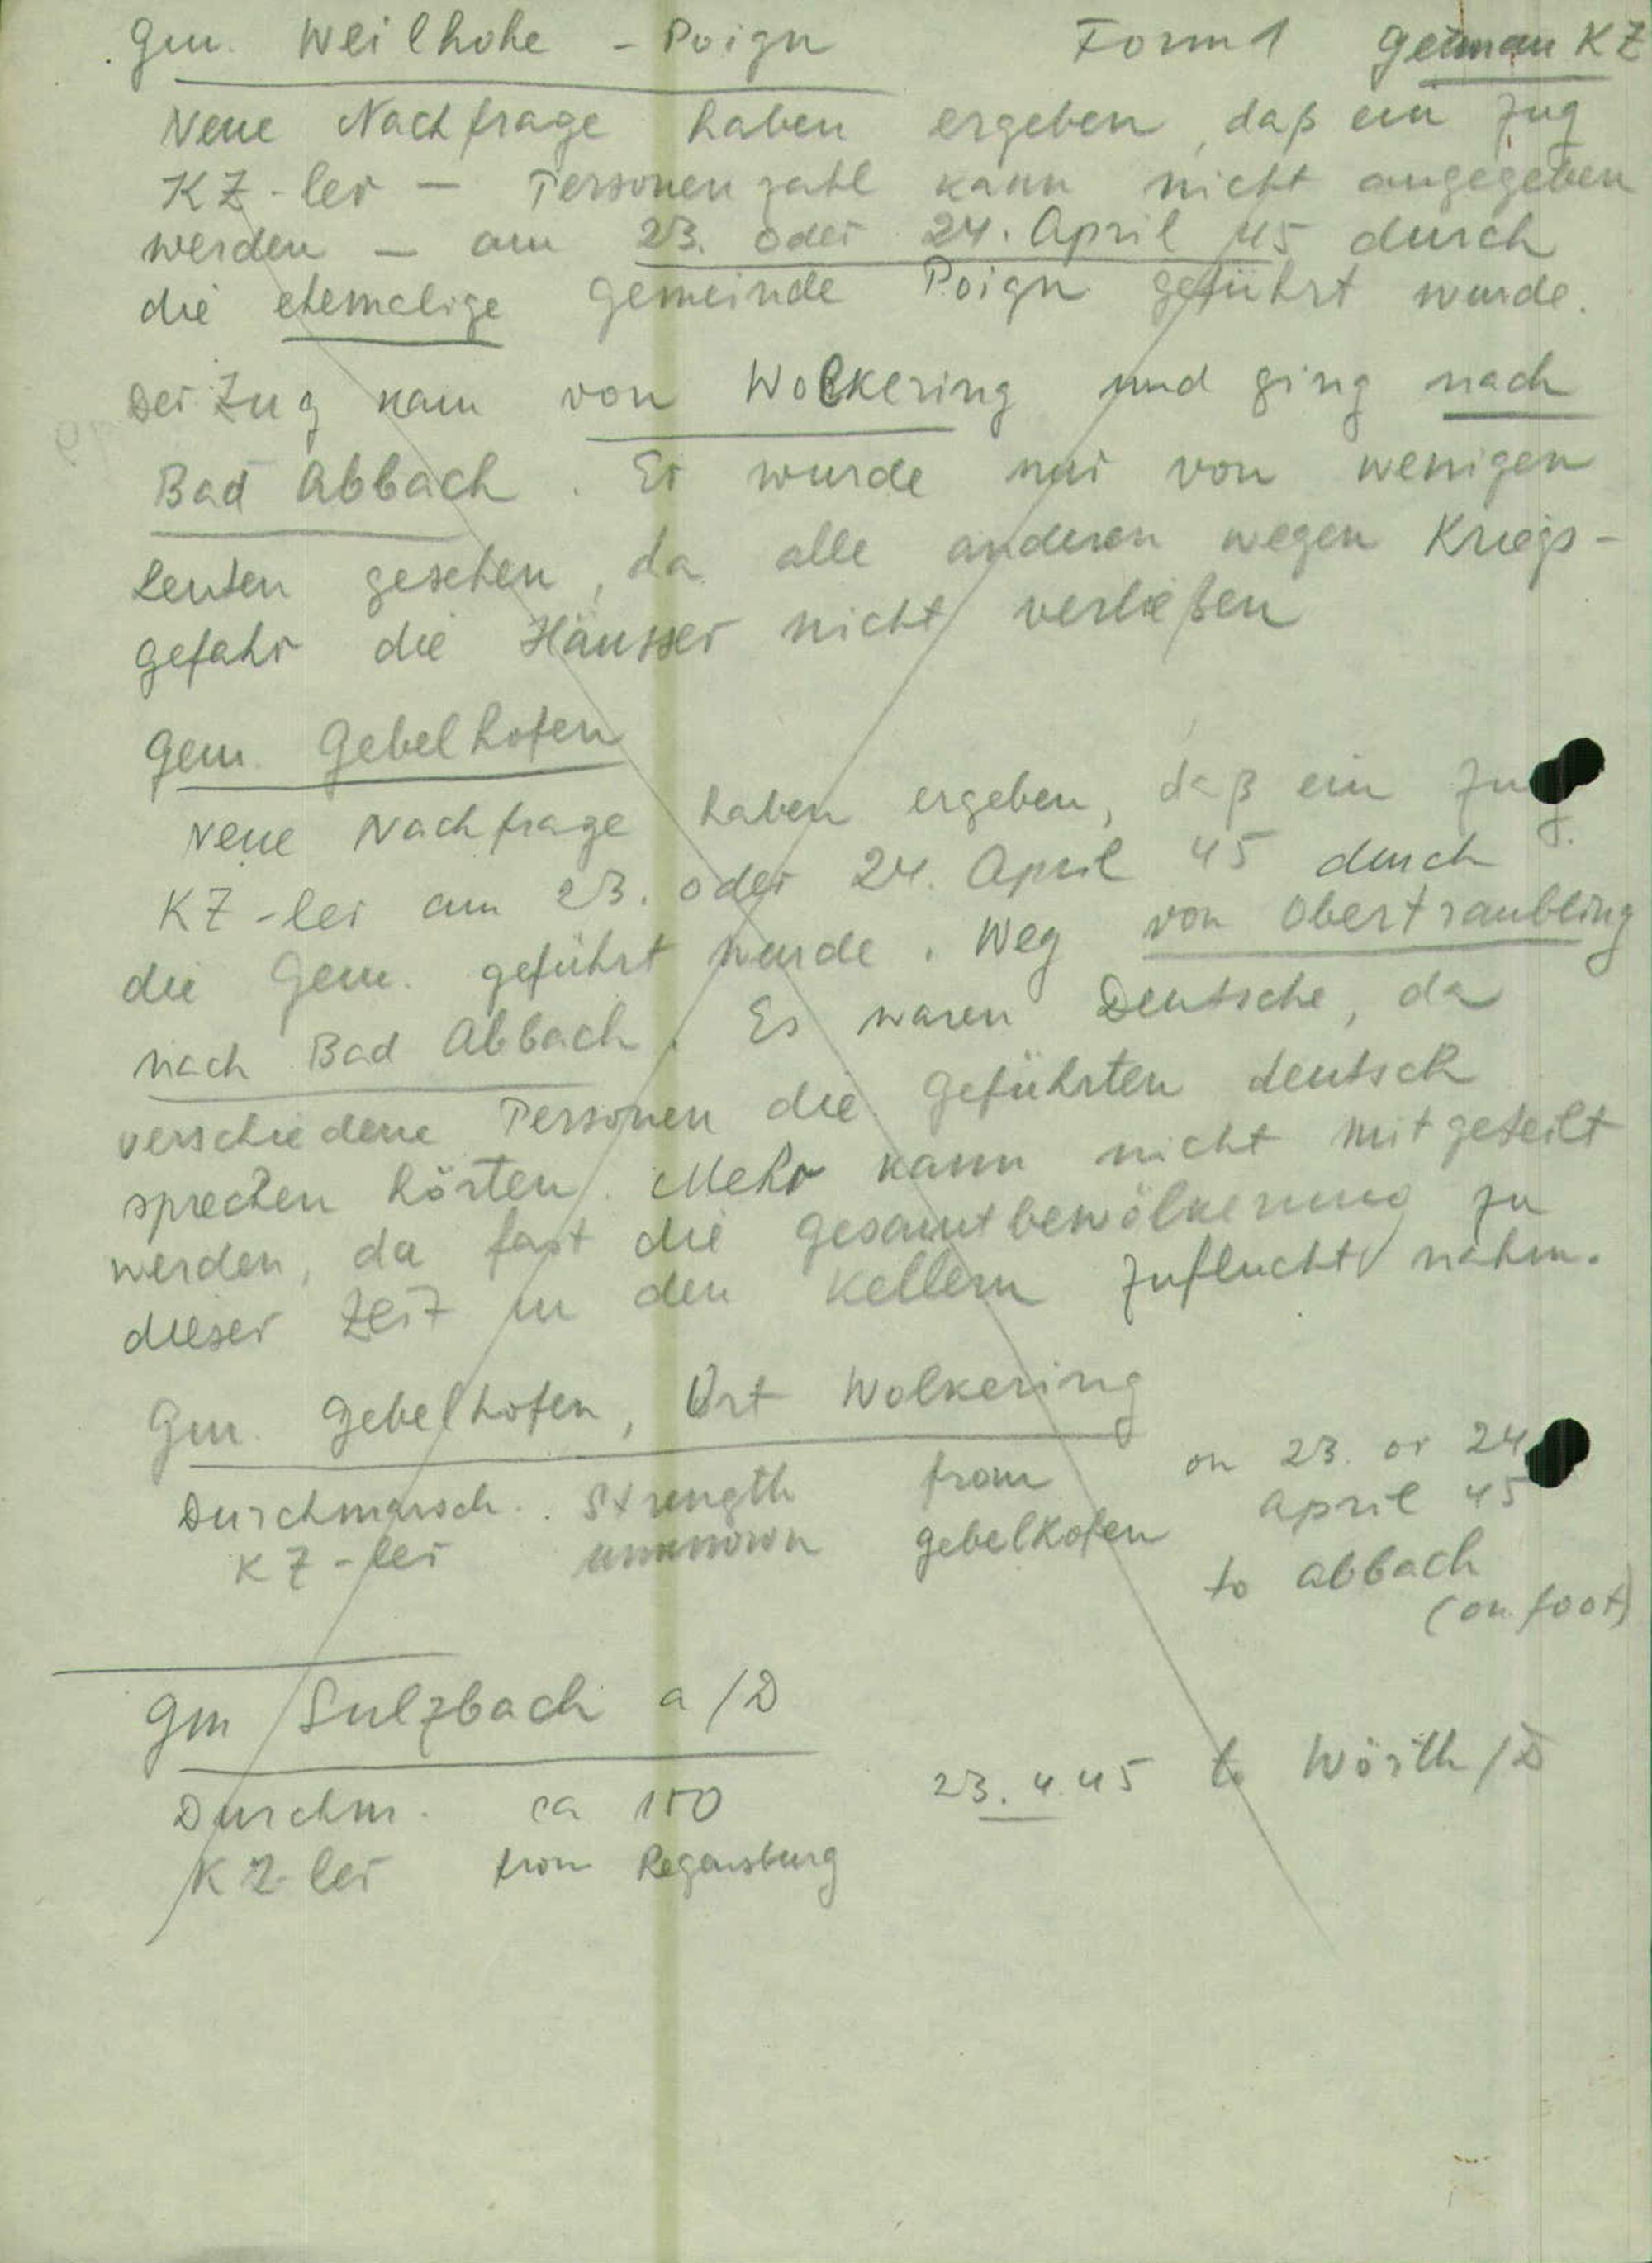 Gm. Weilhohe - Poign Form 1 German KZ
Neue Nachfrage haben ergeben, daß ein Zug
KZ-ler — Personenzahl kann nicht angegeben
werden — am 23. oder 24. April 45 durch
die ehemalige Gemeinde Poign geführt wurde.
Der Zug kam von Wolkering und ging nach
Bad Abbach. Er wurde nur von wenigen
Leuten gesehen, da alle anderen wegen Kriegs-
gefahr die Häusser nicht verließen
Gem. Gebelkofen
Neue Nachfrage haben ergeben, daß ein Zug
KZ-ler am 23. oder 24. April 45 durch
die Gem. geführt wurde. Weg von Obertraubling
nach Bad Abbach. Es waren Deutsche, da
verschiedene Personen die Geführten deutsch
sprechen hörten. Mehr kann nicht mitgeteilt
werden, da fast die Gesamtbevölkerung zu
dieser Zeit in den Kellern Zuflucht nahm.
Gm. Gebelkofen, Ort Wolkering
Durchmarsch. Strength from on 23. or 24
KZ-ler unknown Gebelkofen April 45
to Abbach
(on foot)
Gm Sulzbach a/D
Durchm. ca 150 23.4.45 to Wörth/D
KZ-ler from Regensburg